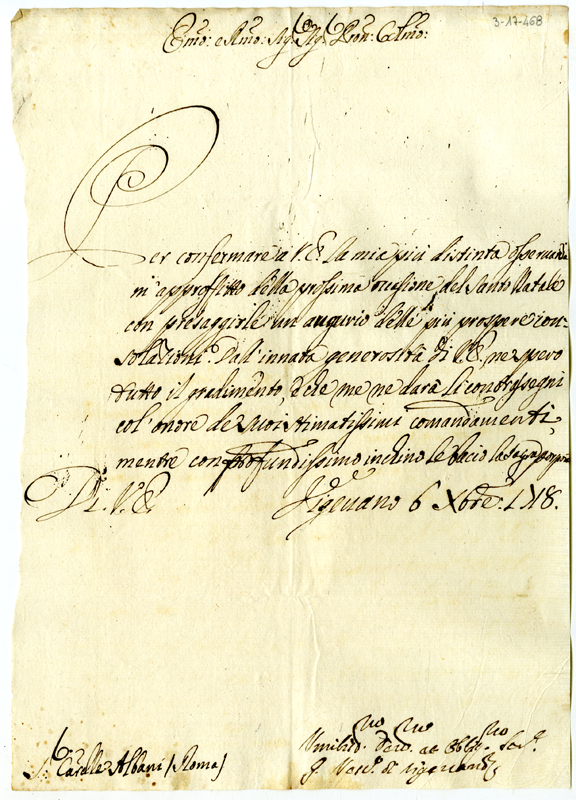 3-17-468
Emo: e Rmo: Sig.r Sig.r Pron: Colmo:
Per confermare a V.E. la mia più distinta osservanza
m'approfitto della prossima occasione del Santo Natale
con presagirle un augurio delle più prospere con-
solazioni. Dall'innata generosità di V.E. ne spero
tutto il gradimento, e che me ne darà li contrasegni
col'onore de suoi stimatissimi comandamenti,
mentre con profondissimo inchino le bacio la Sagra porpora
Di V.E. Vigevano 6 Xbre. 1718.
S.r Cardle Albani (Roma)
Umilmo Devmo ed Obblmo Ser.e
G. Vesc.o di Vigevano